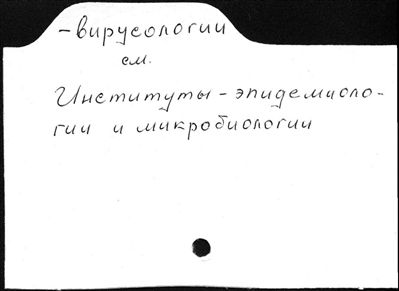 -вирусологии
см.
Институты - эпидемиоло-
гии и микробиологии